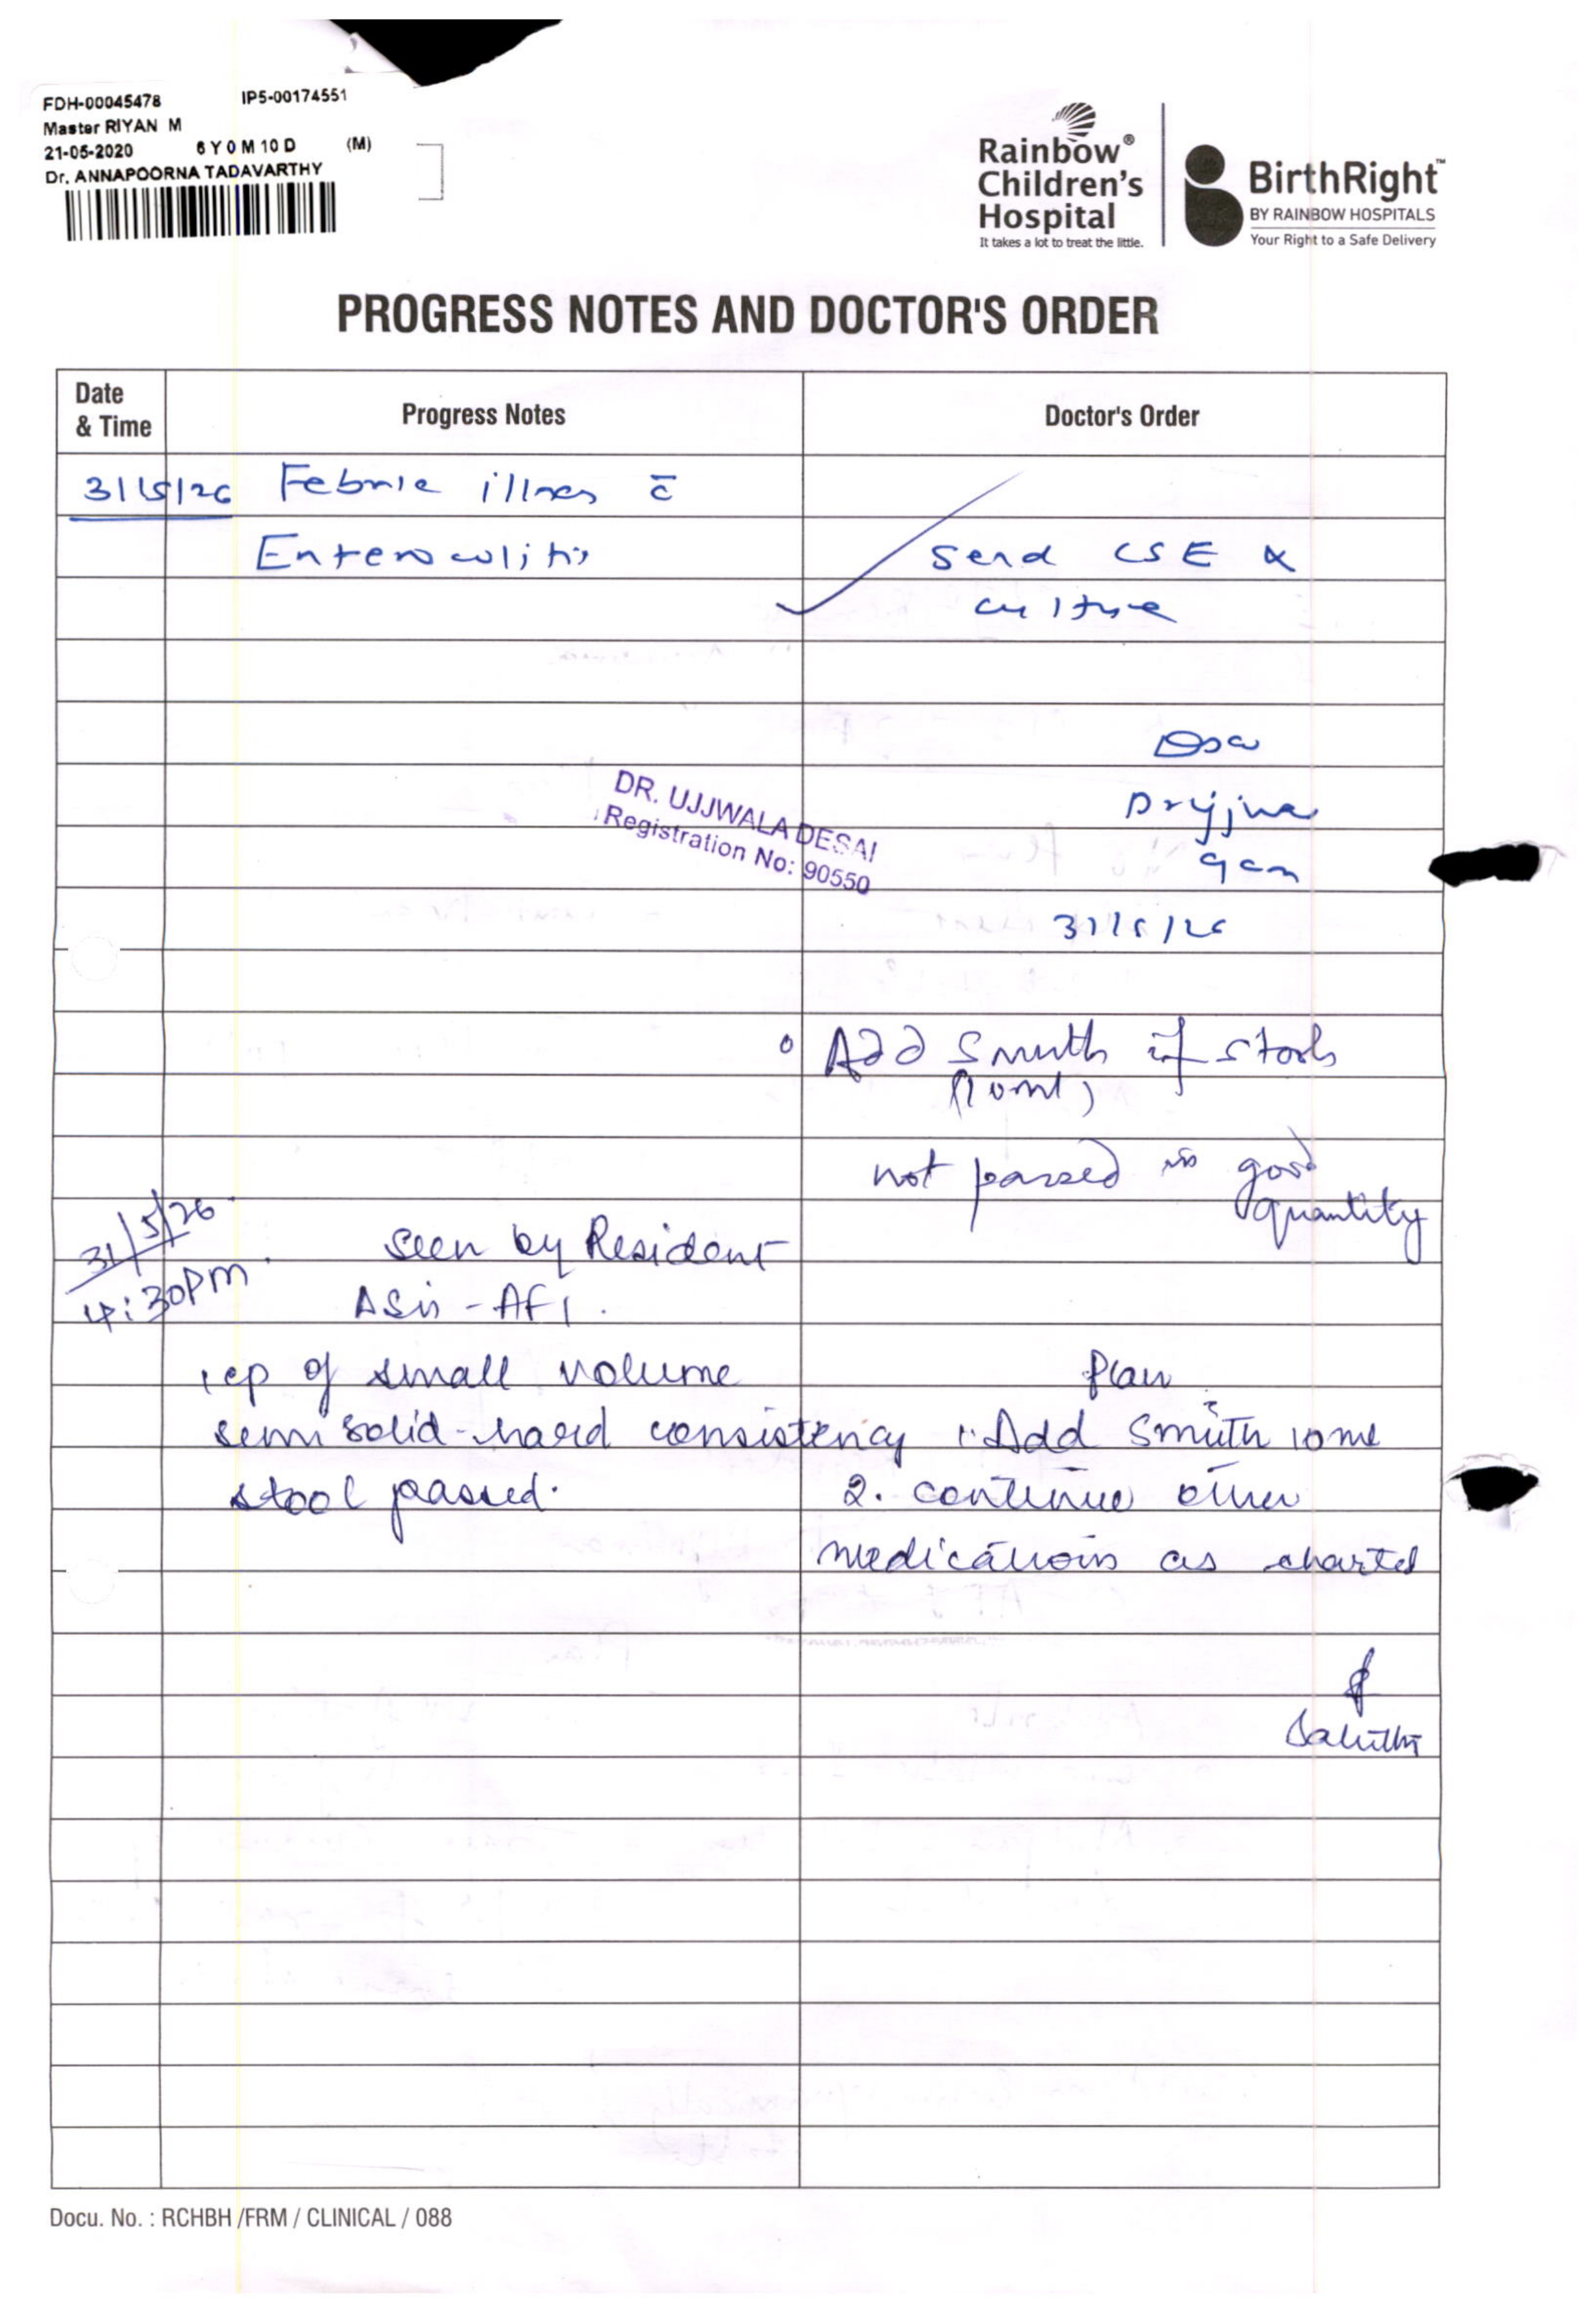 FDH-00045478 IP5-00174551
Master RIYAN M
21-05-2020 6 Y 0 M 10 D (M)
Dr. ANNAPOORNA TADAVARTHY
Rainbow®
Children's
Hospital
It takes a lot to treat the little.
BirthRight™
BY RAINBOW HOSPITALS
Your Right to a Safe Delivery
PROGRESS NOTES AND DOCTOR'S ORDER
Date
& Time
Progress Notes
Doctor's Order
31/5/26 Febrile illness c̄
Enterocolitis
Send CSE &
culture
DR. UJJWALA DESAI
Registration No: 90550
9am
31/5/26
Add Smuth if stools
(10ml)
not passed in good
quantity
31/5/26
4:30pm
Seen by Resident
AFI.
1 ep of small volume
semisolid-hard consistency
stool passed.
Plan
1. Add Smuth 10ml
2. continue other
medications as charted
Docu. No. : RCHBH /FRM / CLINICAL / 088